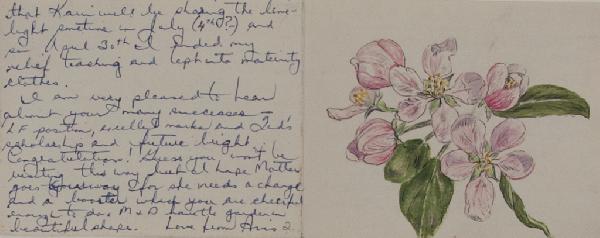 that Kari will be sharing the lime-
light sometime in July (4th?) and
so April 30th I ended my
relief teaching and leapt into maternity
clothes.
I am very pleased to hear
about your many successes —
LF position, excellent marks and Ted's
scholarship and future bright.
Congratulations! Guess you won't be
visiting this way but I hope Mother
goes for she needs a change
and a booster which you are cheerful
enough to do. M & D have the garden in
beautiful shape. Love from